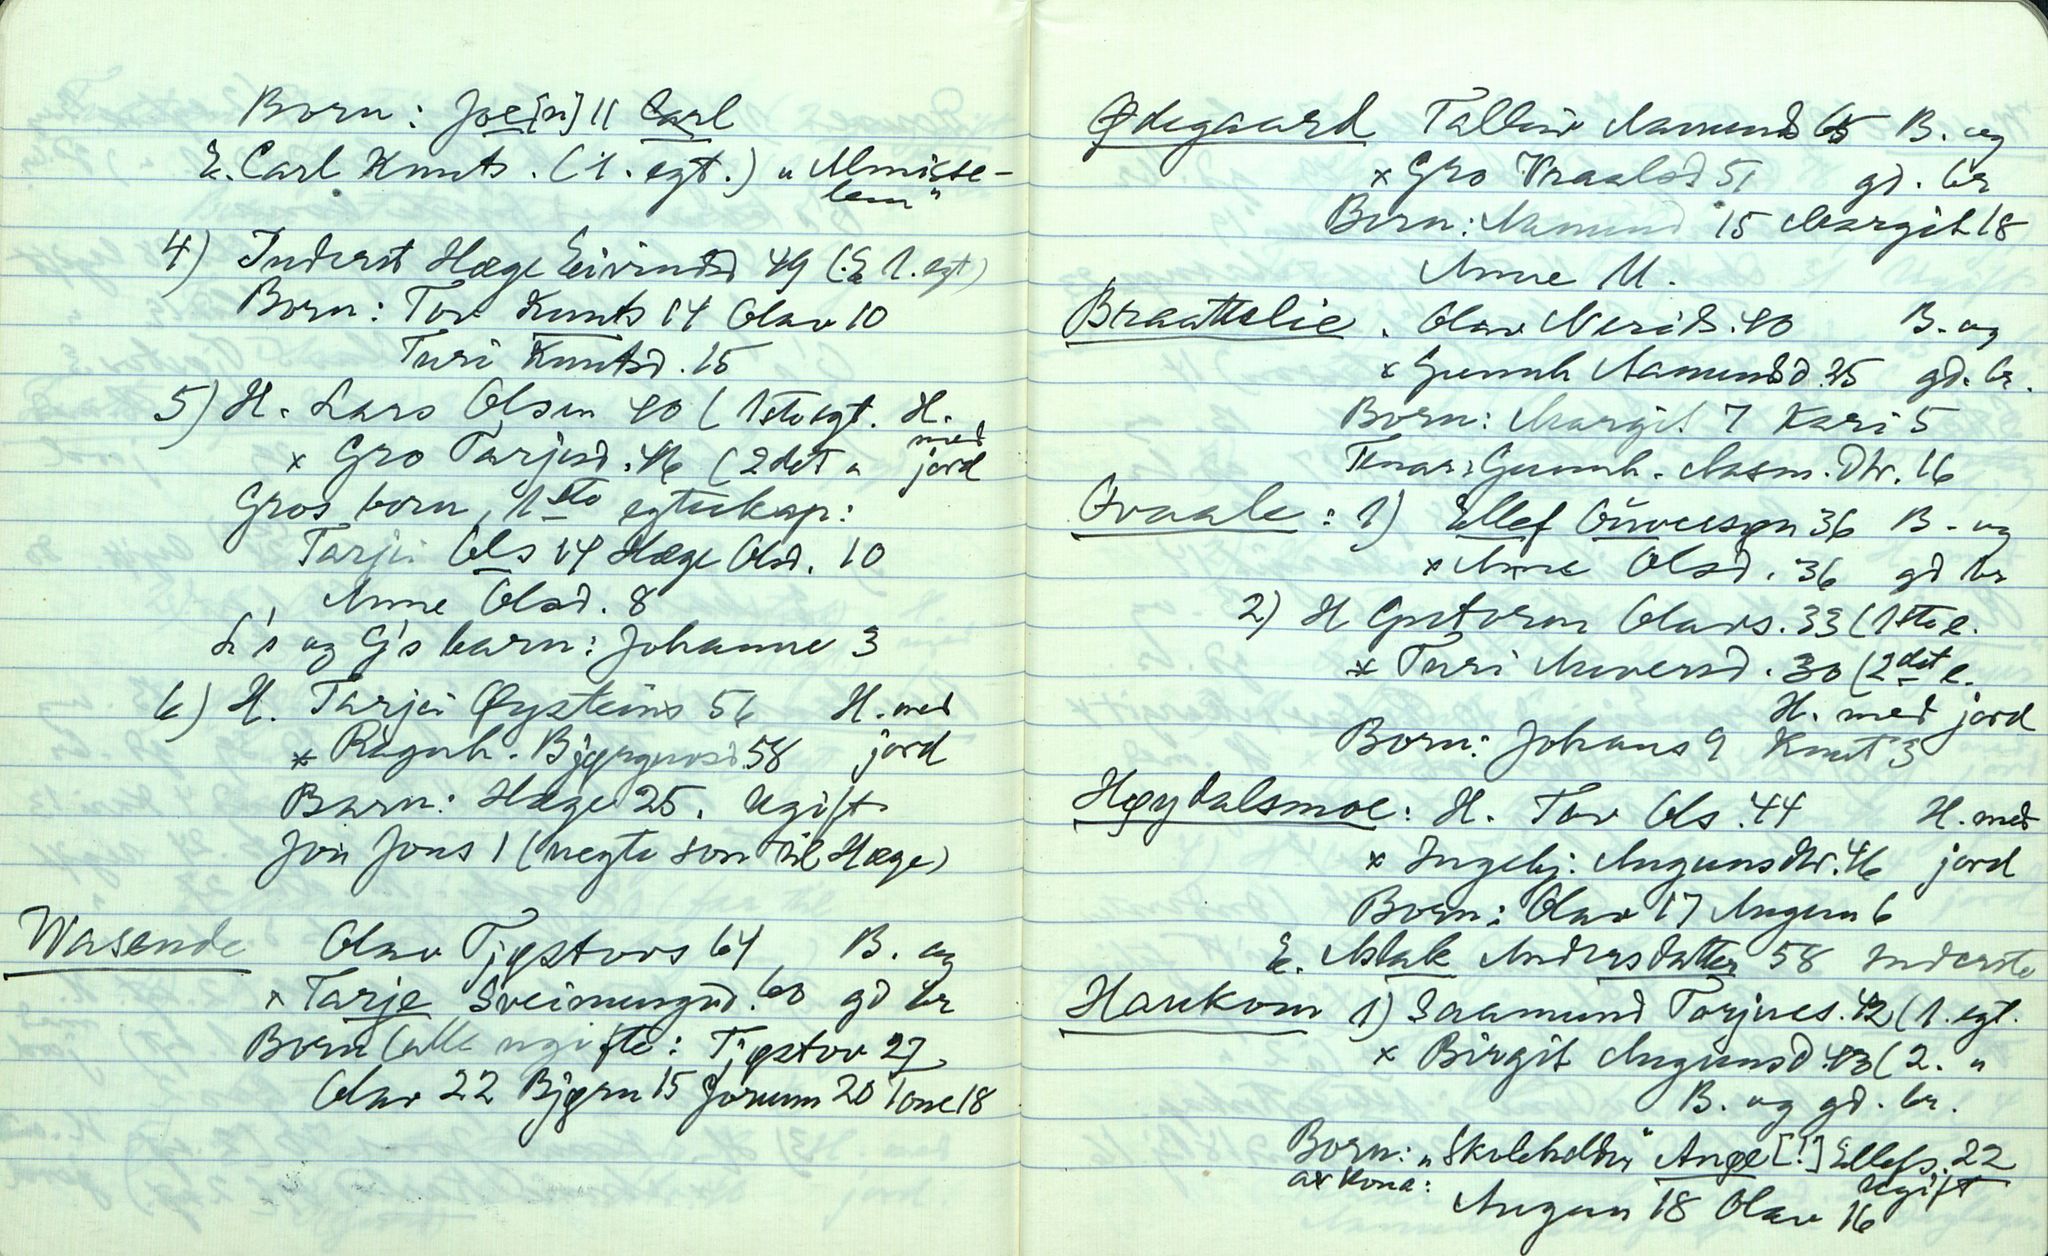 Born: Joe[n] 11 Carl
E. Carl Knuts. (1. egt.) "Almisse-
lem"
4) Inderst Hæge Eivindsd 49 (E 1. egt)
Born: Tor Knuts 14 Olav 10
Turi Knutsd. 15
5) H. Lars Olsen 40 (1ste egt. H.
med
x Gro Tarjesd. 46 (2det " jord
Gros born, 1ste egteskap:
Tarjei Ols 14 Hæge Olsd. 10
Anne Olsd. 8
L's og G's barn: Johanne 3
6) H. Tarjei Øysteins 56 H. med
x Ragnh. Bjørgusd 58 jord
Barn: Hæge 25. Ugift
Jon Jons 1 (uegte son til Hæge)
Wasende Olav Tjøstovs 64 B. og
x Tarje Sveinungsd. 60 gd br
Born (alle ugifte: Tjøstov 27,
Olav 22 Bjørn 15 Jorunn 20 Tone 18
Ødegaard Talleiv Aamunds 65 B. og
x Gro Kraalsd 51 gd. br
Born: Aamund 15 Margit 18
Anne 11.
Braattelie. Olav Nerids. 40 B. og
x Gunnh Aamundsd. 25 gd. br.
Born: Margit 7 Kari 5
Tenar: Gunnh. Aasm. Dtr. 16
Qvaale: 1) Ellef Guversøn 36 B. og
x Anne Olsd. 36 gd br
2) H Gutorm Olavs. 33 (1ste e.
x Turi Auversd. 30 (2det e.
H. med jord
Born: Johans 9 Knut 3
Høydalsmoe: H. Tov Ols. 44 H. med
x Ingebj. Augunsdtr. 46 jord
Born: Olav 17 Augun 6
E. Aslak Andersdatter 58 Inderste
Haukom 1) Saamund Torjues. 42 (1. egt.
x Birgit Augunsd. 43 (2. "
B. og gd. br.
Born: "Skoleholder" Ange [!] Ellefs. 22
av kona: ugift
Augun 18 Olav 16